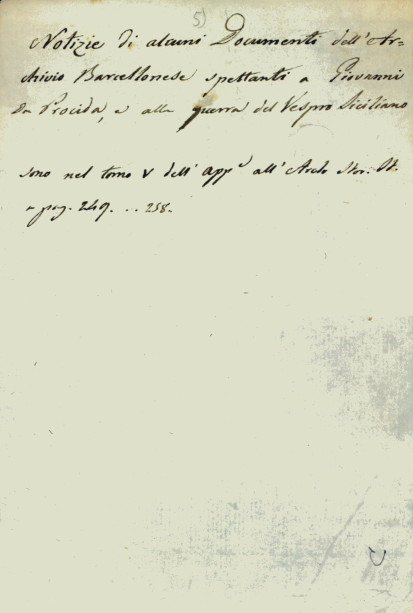 5)
Notizie di alcuni Documenti dell'Ar=
chivio Barcellonese spettanti a Giovanni
da Procida, e alla guerra del Vespro Siciliano
sono nel tomo V dell' app.e all' Arch. Stor. It.
a pag. 249. . . . 258.